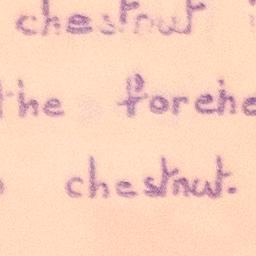 chestnut
the forehe
chestnut.